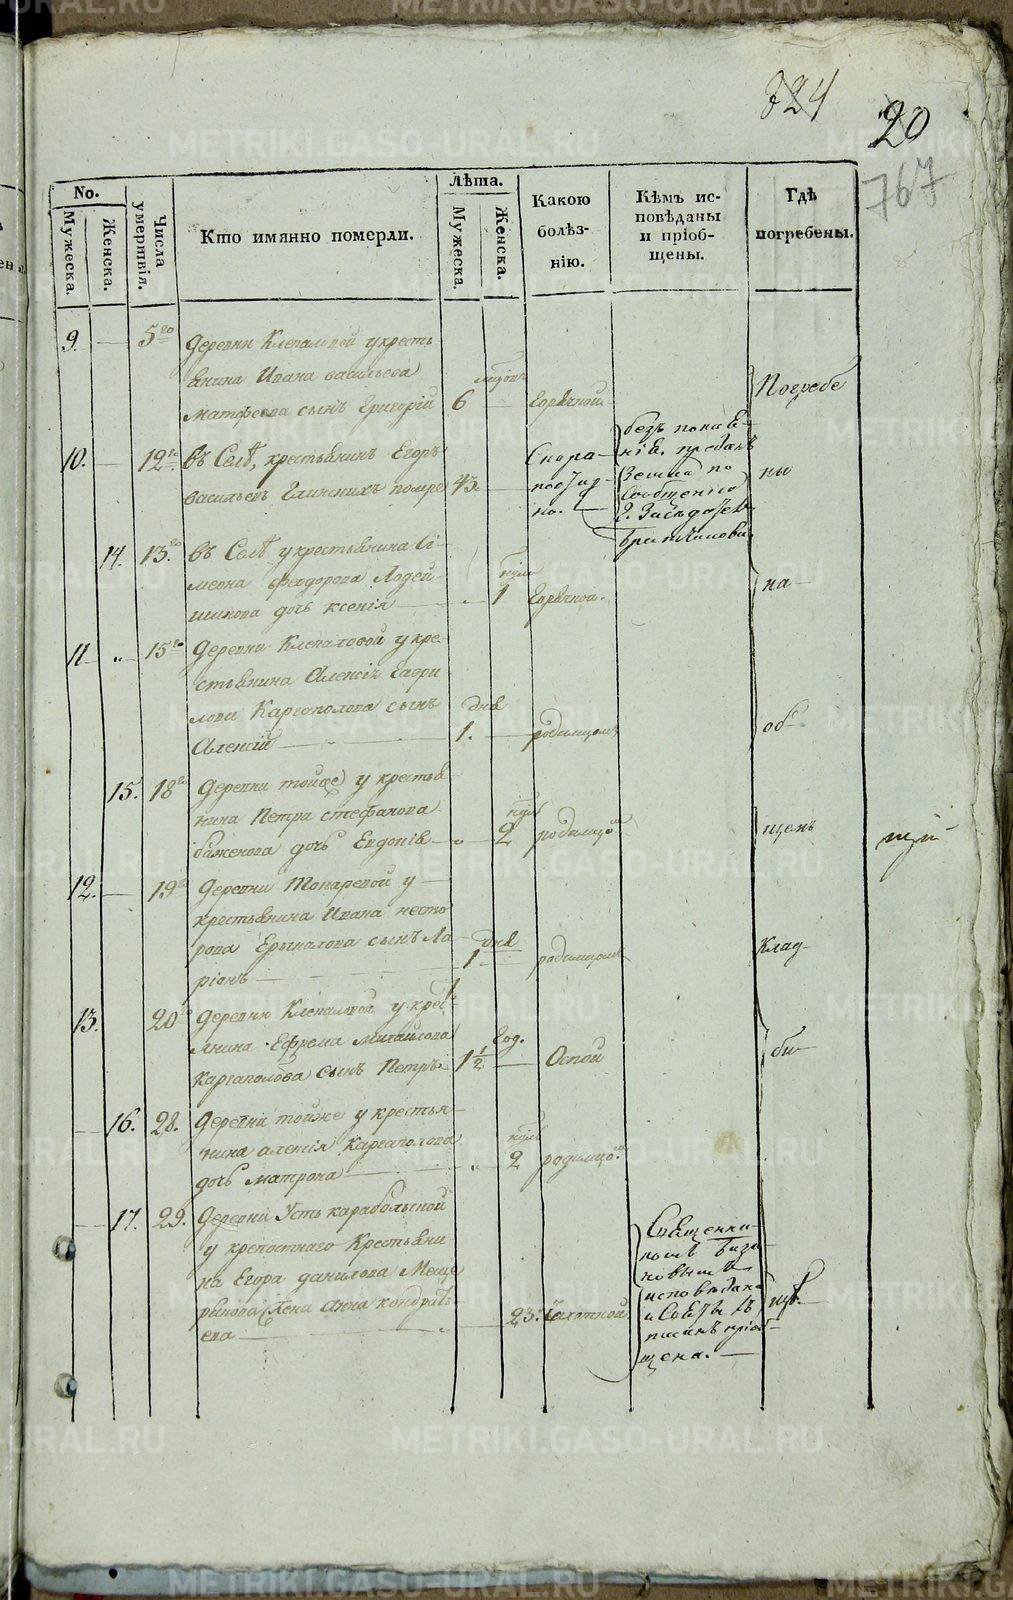 324
20
767
No.
Мужеска.
Женска.
Числа умершвія.
Кто имянно померли.
Лѣта.
Мужеска.
Женска.
Какою болѣз-
нію.
Кѣмъ ис-
повѣданы
и пріоб-
щены.
Гдѣ
погребены.
9. — 5го Деревни Клепаловой у кресть
янина Ивана васильева
матфеева сынъ Григорій 6 — горячкой
Погребе
10. — 12го въ Селѣ, крестьянинъ Егоръ
васильевъ Глинскихъ помре 45. — Скора-
но. —
безъ покая-
нія, преданъ
Землѣ по
Сообщенію
ны
14. 13го въ Селѣ у крестьянина Си-
меона феодорова Лодей-
щикова дочь ксенія — „ 1 горячкой.
на —
11 — „ 15го Деревни Клепаловой у кре-
стьянина Алексія Гаври
лова Каргаполова сынъ
Алексій — дня 1. — родимцомъ
об
15. 18го Деревни тойже у крестья-
нина Петра стефанова
баженова дочь Евдокія — „ 2 родимцо
щемъ
12. — 19го Деревни Токаревой у —
крестьянина Ивана несто
рова Ерыкалова сынъ Ла
ріонъ — дня 1 — родимцомъ
Клад-
13. 20го Деревни Клепаловой у крес
янина Ефрема михайлова
Каргаполова сынъ Петръ. Год. 1 1/2 — Оспой
би —
16. 28. Деревни тойже у крестья-
нина алексія Каргаполова
дочь матрона — „ 2 родимцо
17. 29. Деревни Усть карабольской
у крепостнаго Крестьяни
на Егора данилова Меще
рякова жена Анна кондрать
ева — „ — 23. Чахоткой
Священни-
комъ
исповѣдана
и Св
пріоб-
щена. —
щѣ. —